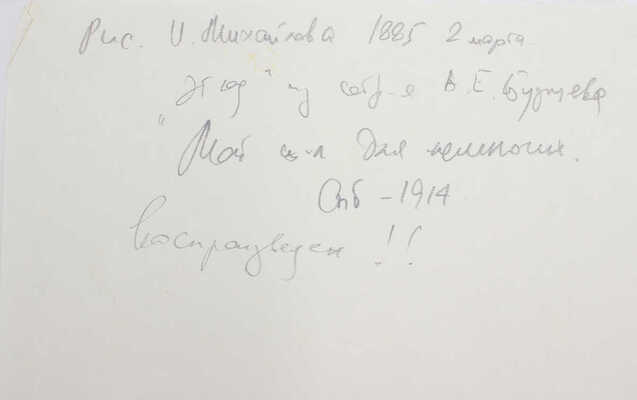 Рис. И. Михайлова 1885 2 марта
"Этюд" из собр-я В. Е. Бурцева
"Мой ж-л для немногих.
Спб - 1914
Воспроизведен !!